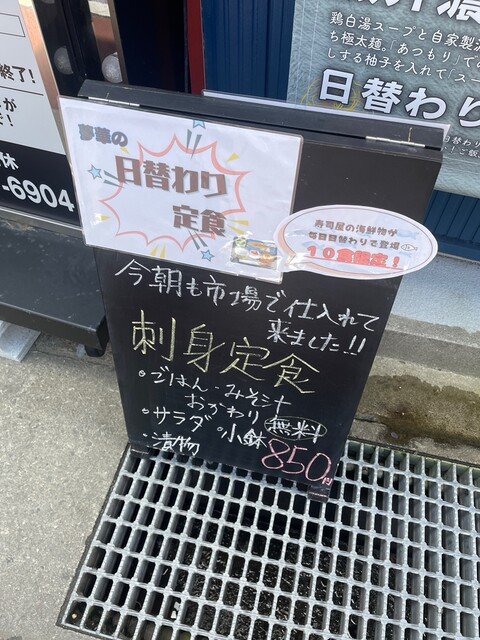 鶏白湯スープと自家製
ち極太麺。「あつもり」で
しする柚子を入れて「ス
日替わり
終了!
休
-6904
夢様の
日替わり
定食
寿司屋の海鮮物が
毎日日替わりで登場
10食限定!
今朝も市場で仕入れて
来ました!!
刺身定食
・ごはん・みそ汁
おかわり
無料
・サラダ・小鉢
・漬物
850円